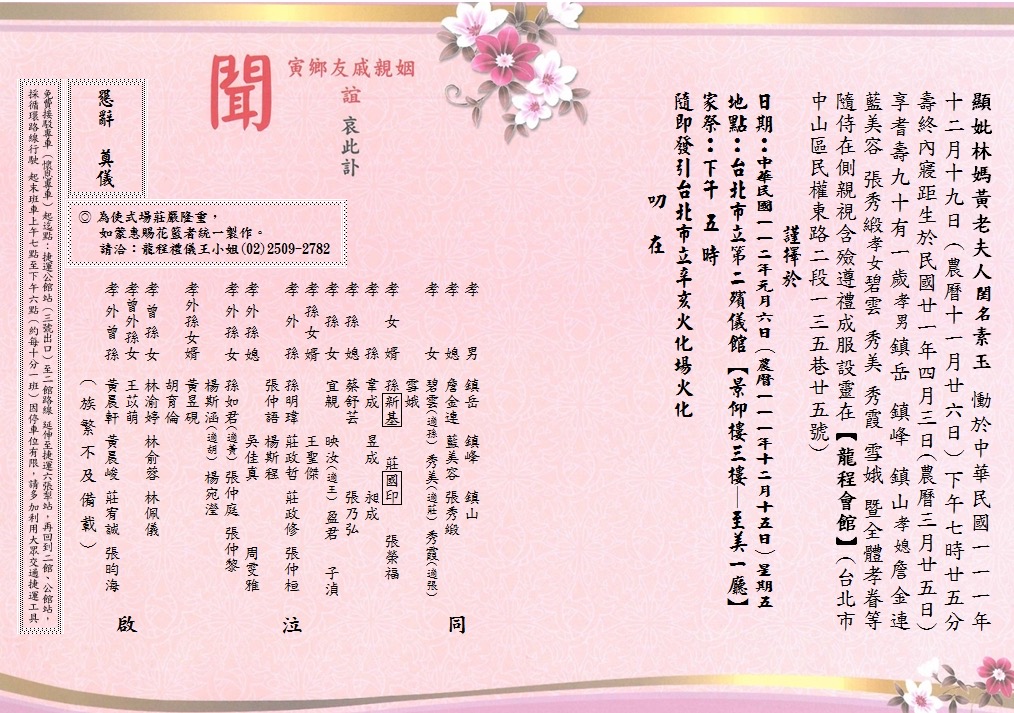 顯妣林媽黃老夫人閨名素玉　慟於中華民國一一一年
十二月十九日（農曆十一月廿六日）下午七時廿五分
壽終內寢距生於民國廿一年四月三日（農曆三月廿五日）
享耆壽九十有一歲孝男 鎮岳 鎮峰 鎮山孝媳詹金連
藍美容 張秀緞孝女碧雲 秀美 秀霞 雪娥 暨全體孝眷等
隨侍在側親視含殮遵禮成服設靈在【龍程會館】（台北市
中山區民權東路二段一三五巷廿五號）
謹擇於
日期：中華民國一一二年元月六日（農曆一一一年十二月十五日）星期五
地點：台北市立第二殯儀館【景仰樓三樓—至美一廳】
家祭：下午 五 時
隨即發引台北市立辛亥火化場火化
叨　在
寅鄉友戚親姻
誼
哀此訃
聞
孝男 鎮岳 鎮峰 鎮山
孝媳 詹金連 藍美容 張秀緞
孝女 碧雲（適孫） 秀美（適莊） 秀霞（適張）
雪娥
孝女婿 孫新基 莊國印 張榮福
孝孫 韋成 昱成 昶成
孝孫媳 蔡舒芸 張乃弘
孝孫女 宜親 映汝（適王） 盈君 子湞
孝孫女婿 王聖傑
孝外孫 孫明瑋 莊政哲 莊政修 張仲桓
張仲語 楊斯程
孝外孫媳 吳佳真 周雯雅
孝外孫女 孫如君（適黃） 張仲庭 張仲黎
楊斯涵（適胡） 楊宛瀅
孝外孫女婿 黃昱硯
胡育倫
孝曾孫女 林渝婷 林俞蓉 林佩儀
孝曾外孫女 王苡萌
孝外曾孫 黃晨軒 黃晨峻 莊宥誠 張昀海
（族繁不及備載）
同
泣
啟
懇辭　奠儀
◎ 為使式場莊嚴隆重，
如蒙惠賜花籃者統一製作。
請洽：龍程禮儀王小姐(02)2509-2782
免費接駁專車（懷恩專車）起迄點：捷運公館站（三號出口）至二館路線 延伸至捷運六張犁站，再回到二館、公館站，
採循環路線行駛 起末班車上午七點至下午六點（約每十分一班）因停車位有限，請多加利用大眾交通捷運工具